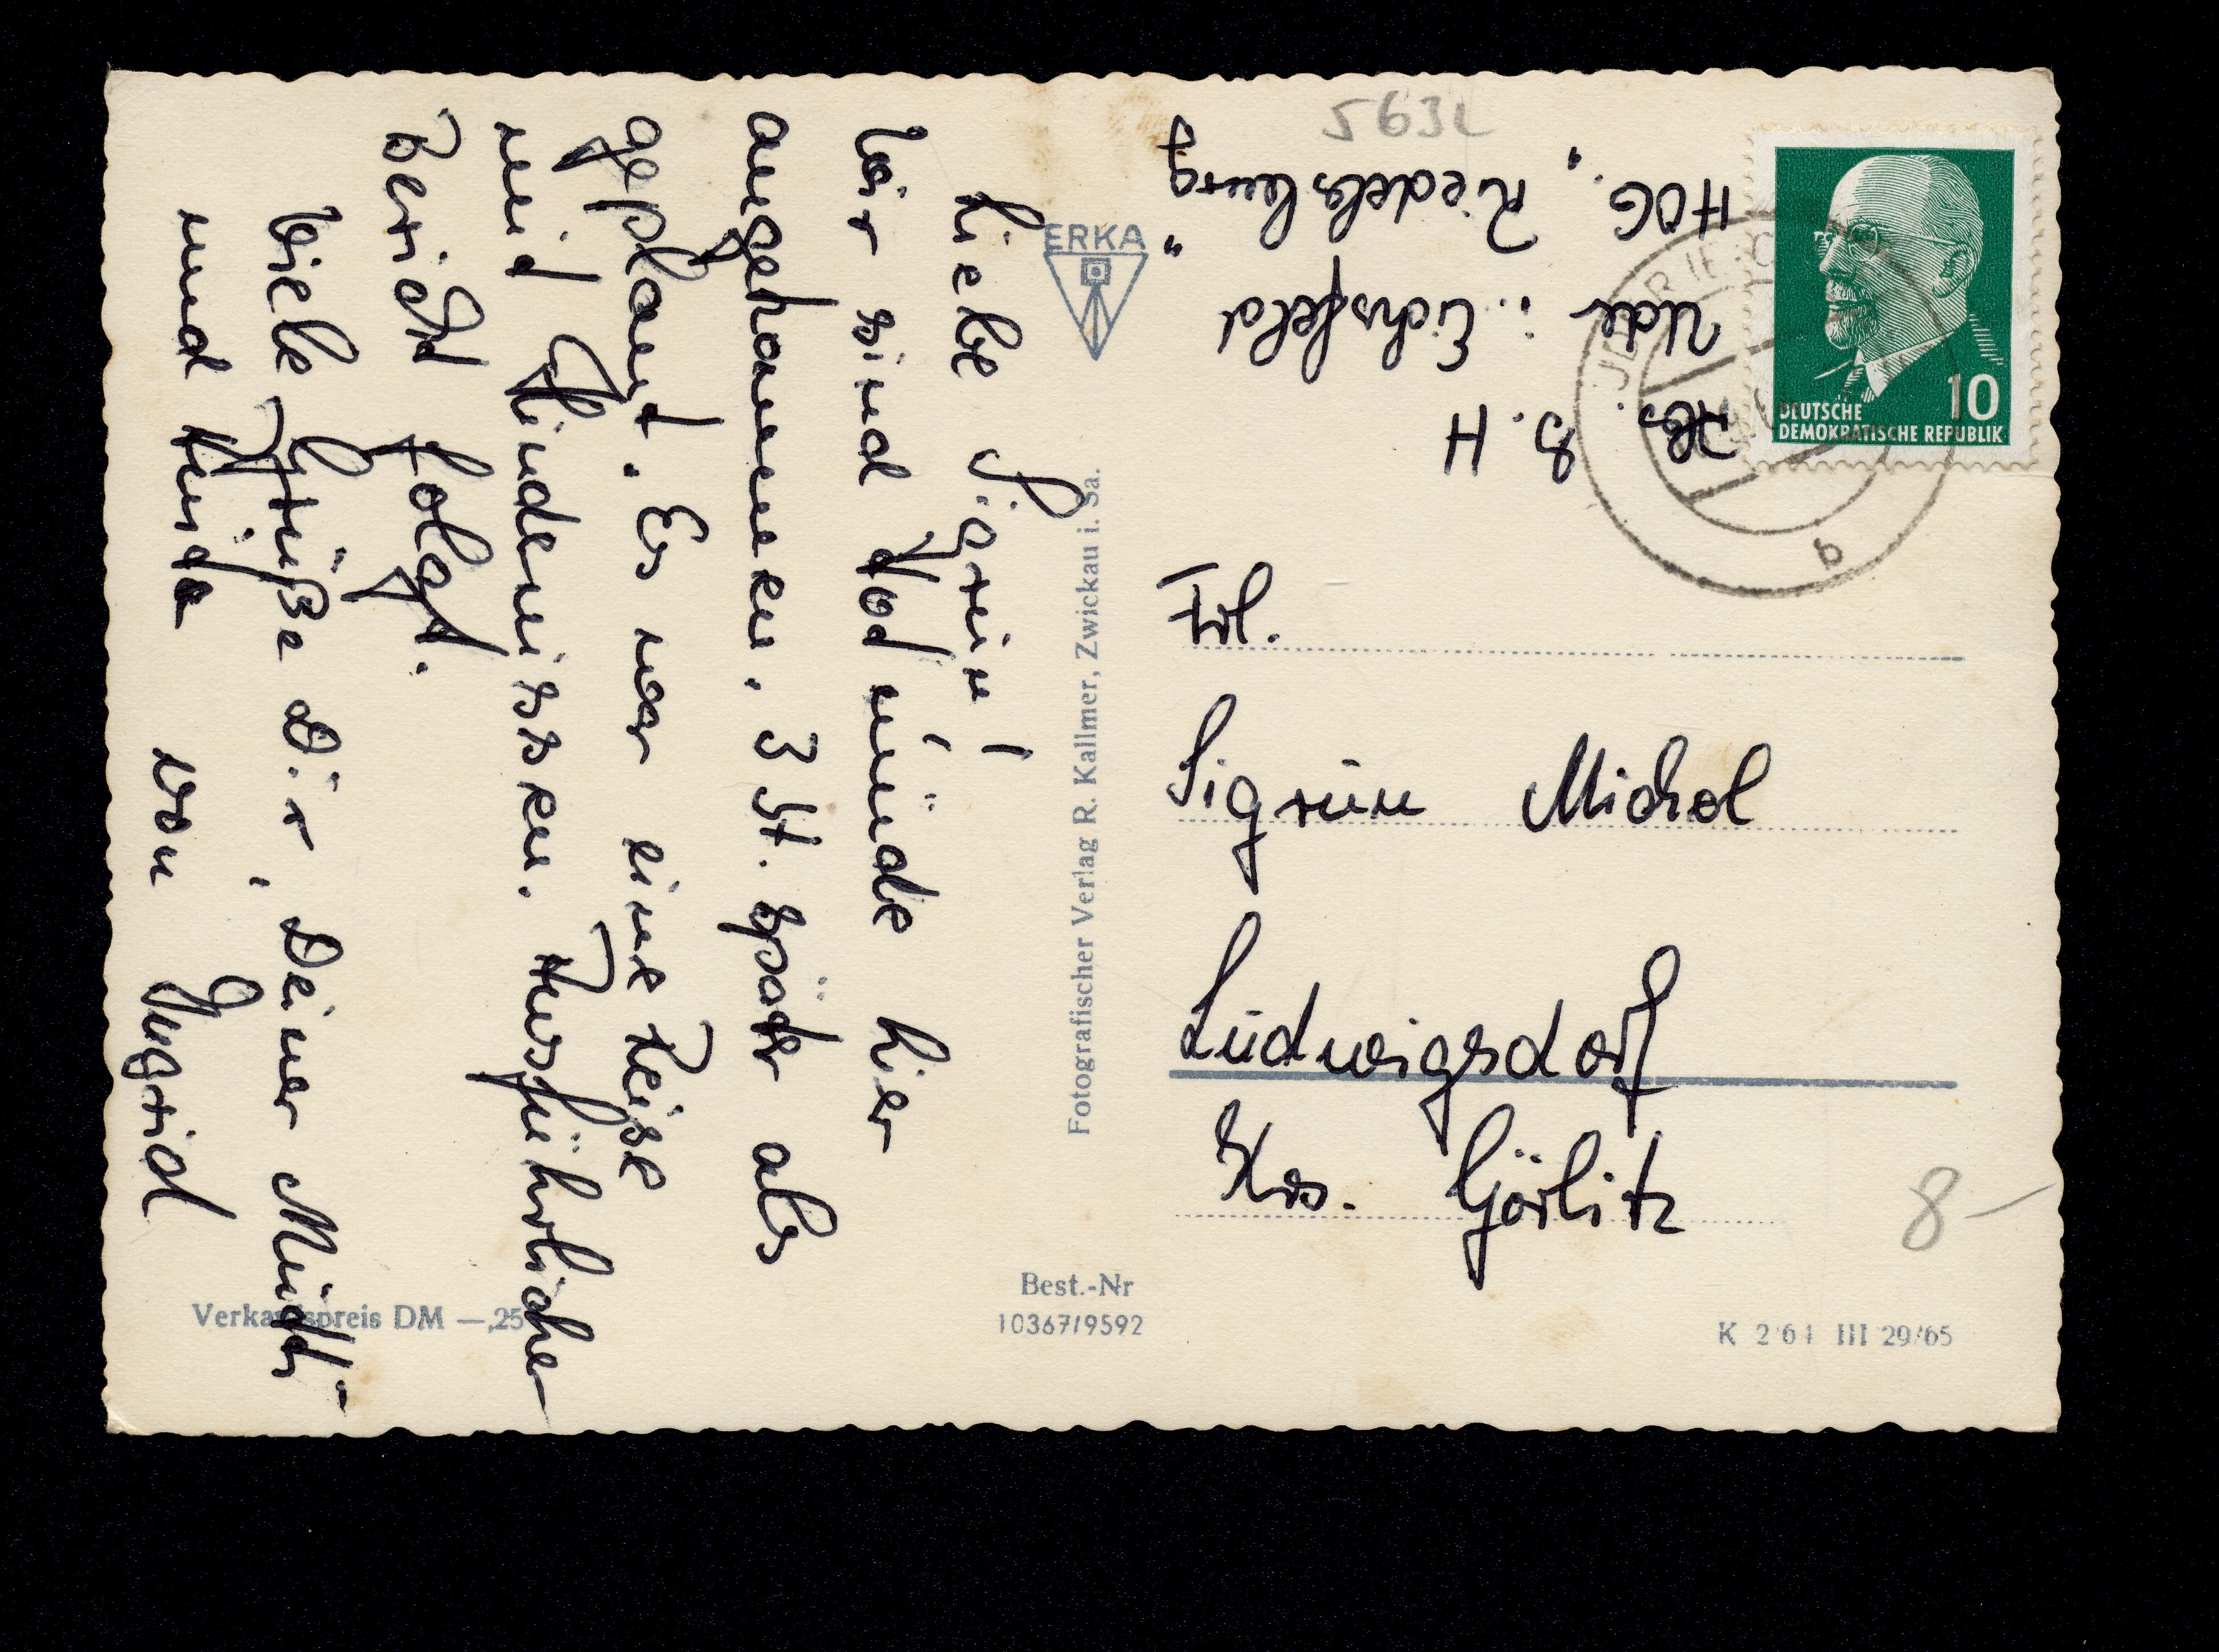 Liebe Sigrun!
Wir sind todmüde hier
angekommen. 3 St. später als
geplant. Es war eine Reise
mit Hindernissen. Ausführlicher
Bericht folgt.
Viele Grüße Dir, Deiner Mutti
und von Ingrid
Verkaufspreis DM —,25
ERKA
Fotografischer Verlag R. Kallmer, Zwickau i. Sa.
Best.-Nr
10367/9592
Abs. H
Uder i. Eichsfeld
HOG. „Riedelsburg“
10
DEUTSCHE
DEMOKRATISCHE REPUBLIK
b
Frl.
Sigrun Michel
Ludwigsdorf
Krs. Görlitz
8-
K 2/61 III 29/65